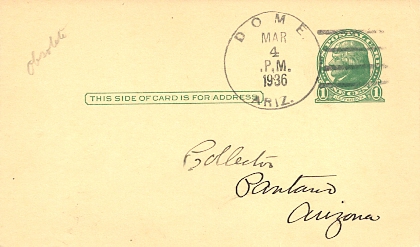 obsolete
DOME
MAR
4
P.M.
1936
ARIZ.
1 1
THIS SIDE OF CARD IS FOR ADDRESS
Collector
Pantano
Arizona